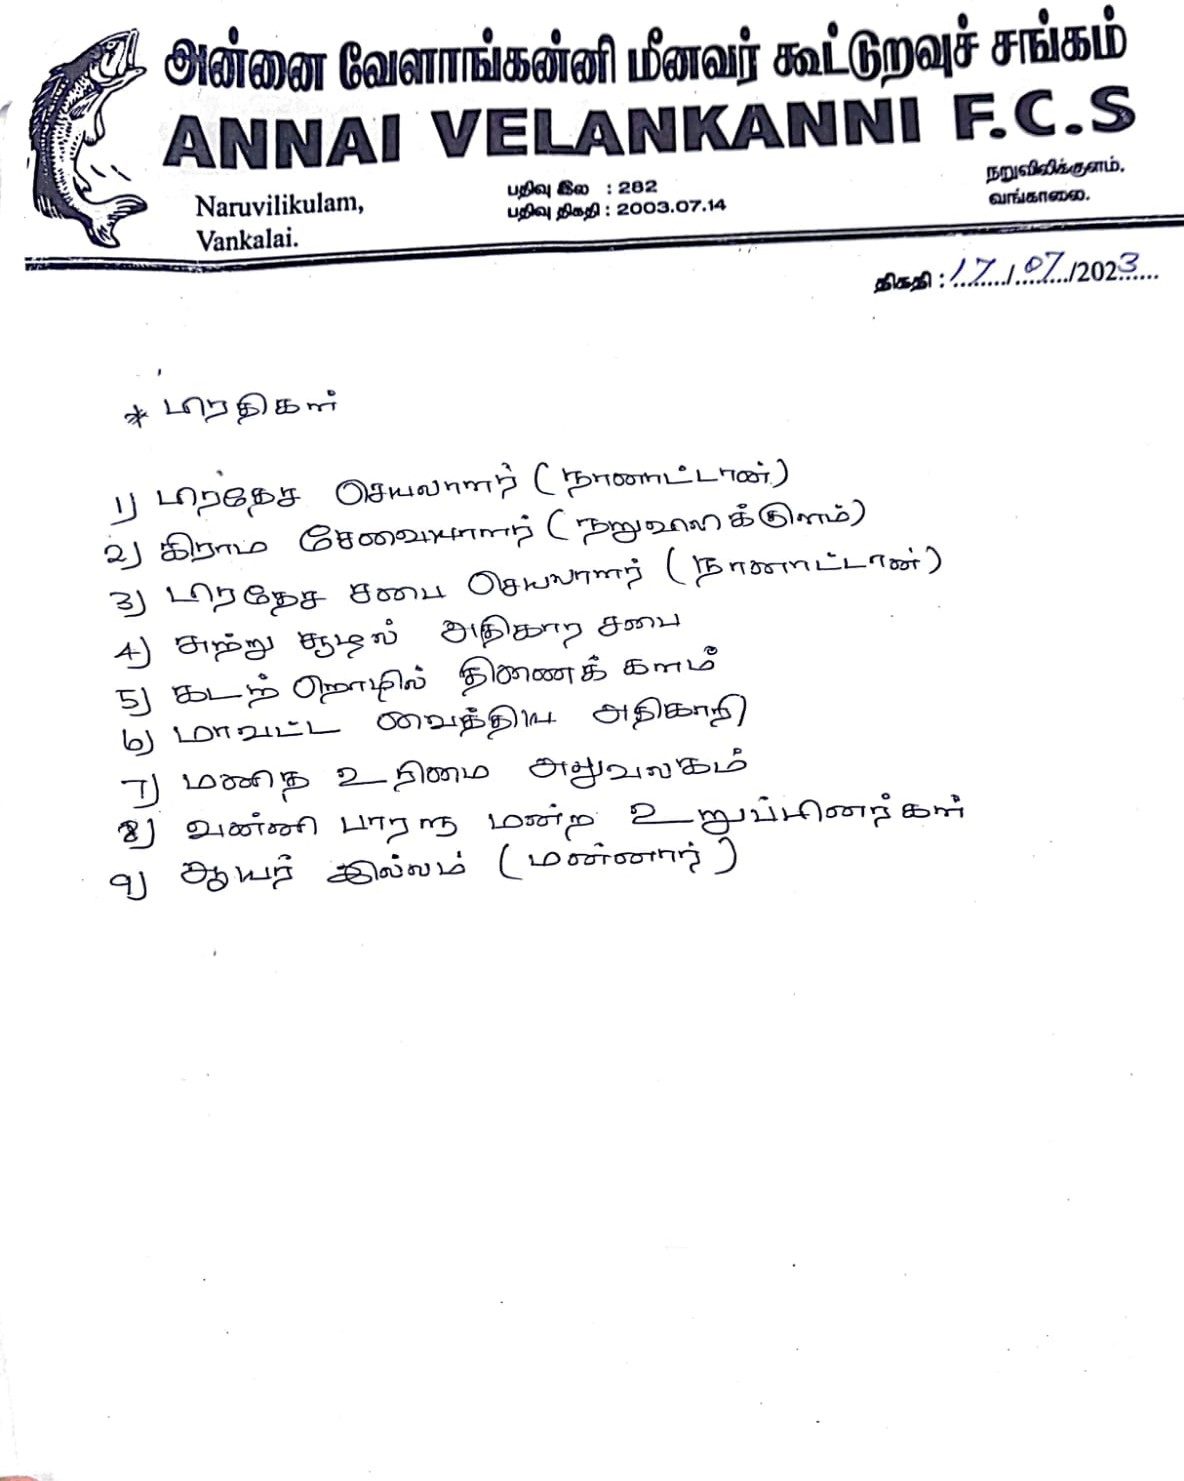 அன்னை வேளாங்கன்னி மீனவர் கூட்டுறவுச் சங்கம்
ANNAI VELANKANNI F.C.S
Naruvilikulam,
Vankalai.
பதிவு இல : 282
பதிவு திகதி : 2003.07.14
நறுவிலிக்குளம்.
வங்காலை.
திகதி : 17/07/2023
* பிரதிகள்
1) பிரதேச செயலாளர் (நானாட்டான்)
2) கிராம சேவையாளர் (நறுவிலிக்குளம்)
3) பிரதேச சபை செயலாளர் (நானாட்டான்)
4) சுற்று சூழல் அதிகார சபை
5) கடற் றொழில் திணைக் களம்
6) மாவட்ட வைத்திய அதிகாரி
7) மனித உரிமை அலுவலகம்
8) வன்னி பாராளு மன்ற உறுப்பினர்கள்
9) ஆயர் இல்லம் (மன்னார்)